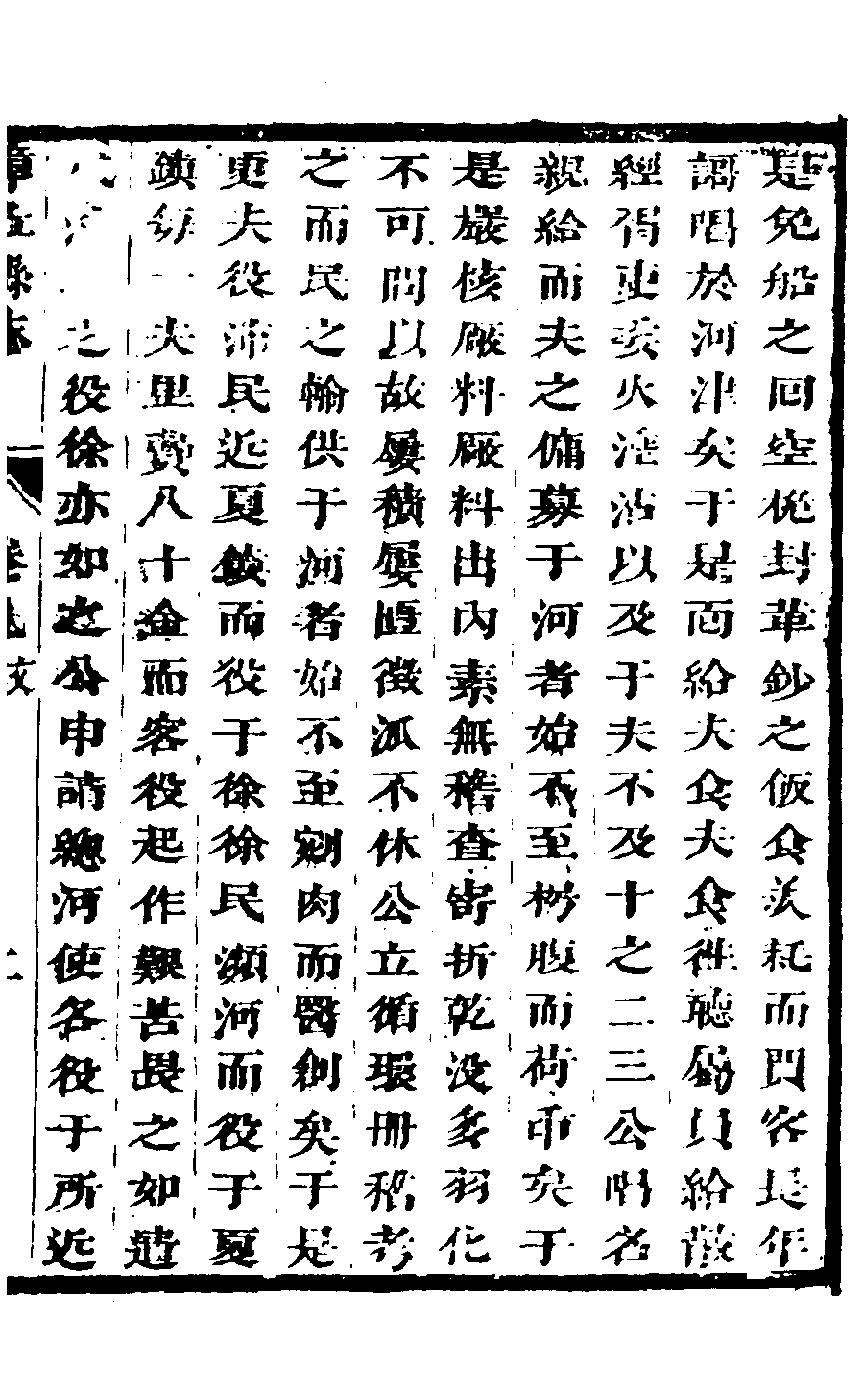 是免船之回空封革鈔之飯食羨耗而門客長年
謌唱於河津矣于是面給夫食夫食往聽屬員給散
經胥吏火沾以及于夫不及十之二三公唱名
親給而夫之傭募于河者始不至枵腹而荷臿矣于
是嚴核廠料廠料出內素無稽查寄折乾没多羽化
不可問以故屢積屢匱徵派不休公立循環冊稽考
之而民之輸供于河者始不至剜肉而醫創矣于是
更夫役沛民近夏鎮而役于徐徐民瀕河而役于夏
鎮每一夫里費八十金而客役起作艱苦畏之如遣
之役徐亦如之公申請總河使各役于所近
章丘縣志 卷九